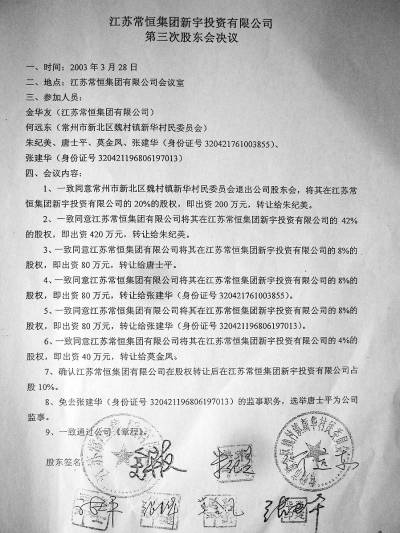 江苏常恒集团新宇投资有限公司
第三次股东会决议
一、时间：2003 年 3 月 28 日
二、地点：江苏常恒集团有限公司会议室
三、参加人员：
金华友（江苏常恒集团有限公司）
何远东（常州市新北区魏村镇新华村民委员会）
朱纪美、唐士平、莫金凤、张建华（身份证号 320421761003855）、
张建华（身份证号 320421196806197013）
四、会议内容：
1、一致同意常州市新北区魏村镇新华村民委员会退出公司股东会，将其在江苏常
恒集团新宇投资有限公司的 20%的股权，即出资 200 万元，转让给朱纪美。
2、一致同意江苏常恒集团有限公司将其在江苏常恒集团新宇投资有限公司的 42%
的股权，即出资 420 万元，转让给朱纪美。
3、一致同意江苏常恒集团有限公司将其在江苏常恒集团新宇投资有限公司的 8%的
股权，即出资 80 万元，转让给唐士平。
4、一致同意江苏常恒集团有限公司将其在江苏常恒集团新宇投资有限公司的 8%的
股权，即出资 80 万元，转让给张建华（身份证号 320421761003855）。
5、一致同意江苏常恒集团有限公司将其在江苏常恒集团新宇投资有限公司的 8%的
股权，即出资 80 万元，转让给张建华（身份证号 320421196806197013）。
6、一致同意江苏常恒集团有限公司将其在江苏常恒集团新宇投资有限公司的 4%的
股权，即出资 40 万元，转让给莫金凤。
7、确认江苏常恒集团有限公司在股权转让后在江苏常恒集团新宇投资有限公司占
股 10%。
8、免去张建华（身份证号 320421196806197013）的监事职务，选举唐士平为公司
监事。
9、一致通过公司《章程》。
股东签名：